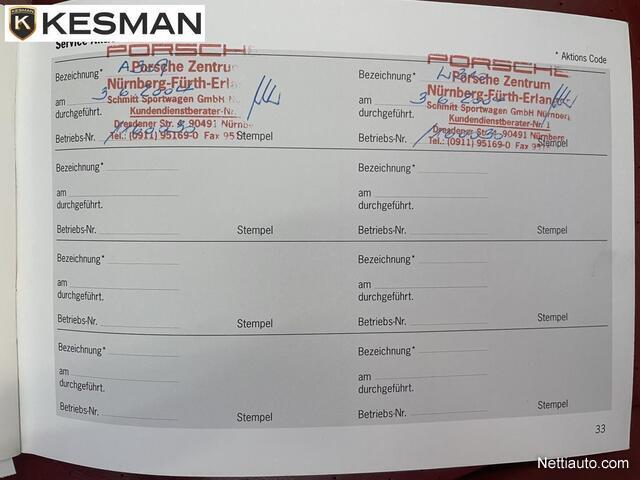 KESMAN
* Aktions Code
PORSCHE PORSCHE
Bezeichnung* Porsche Zentrum Bezeichnung* Porsche Zentrum
Nürnberg-Fürth-Erla Nürnberg-Fürth-Erlan
am 3.6.2004 am 3.6.2004
Schmitt Sportwagen GmbH Schmitt Sportwagen GmbH Nürnberg
durchgeführt. Kundendienstberater-Nr. durchgeführt. Kundendienstberater-Nr.
Dresdener Str. 90491 Nürnbe Dresdener Str. 90491 Nürnberg
Betriebs-Nr. Tel.: (0911) 95169-0 Fax 95 Stempel Betriebs-Nr. Tel.: (0911) 95169-0 Fax Stempel
Bezeichnung* Bezeichnung*
am am
durchgeführt. durchgeführt.
Betriebs-Nr. Stempel Betriebs-Nr. Stempel
Bezeichnung* Bezeichnung*
am am
durchgeführt. durchgeführt.
Betriebs-Nr. Stempel Betriebs-Nr. Stempel
Bezeichnung* Bezeichnung*
am am
durchgeführt. durchgeführt.
Betriebs-Nr. Stempel Betriebs-Nr. Stempel
33
Nettiauto.com